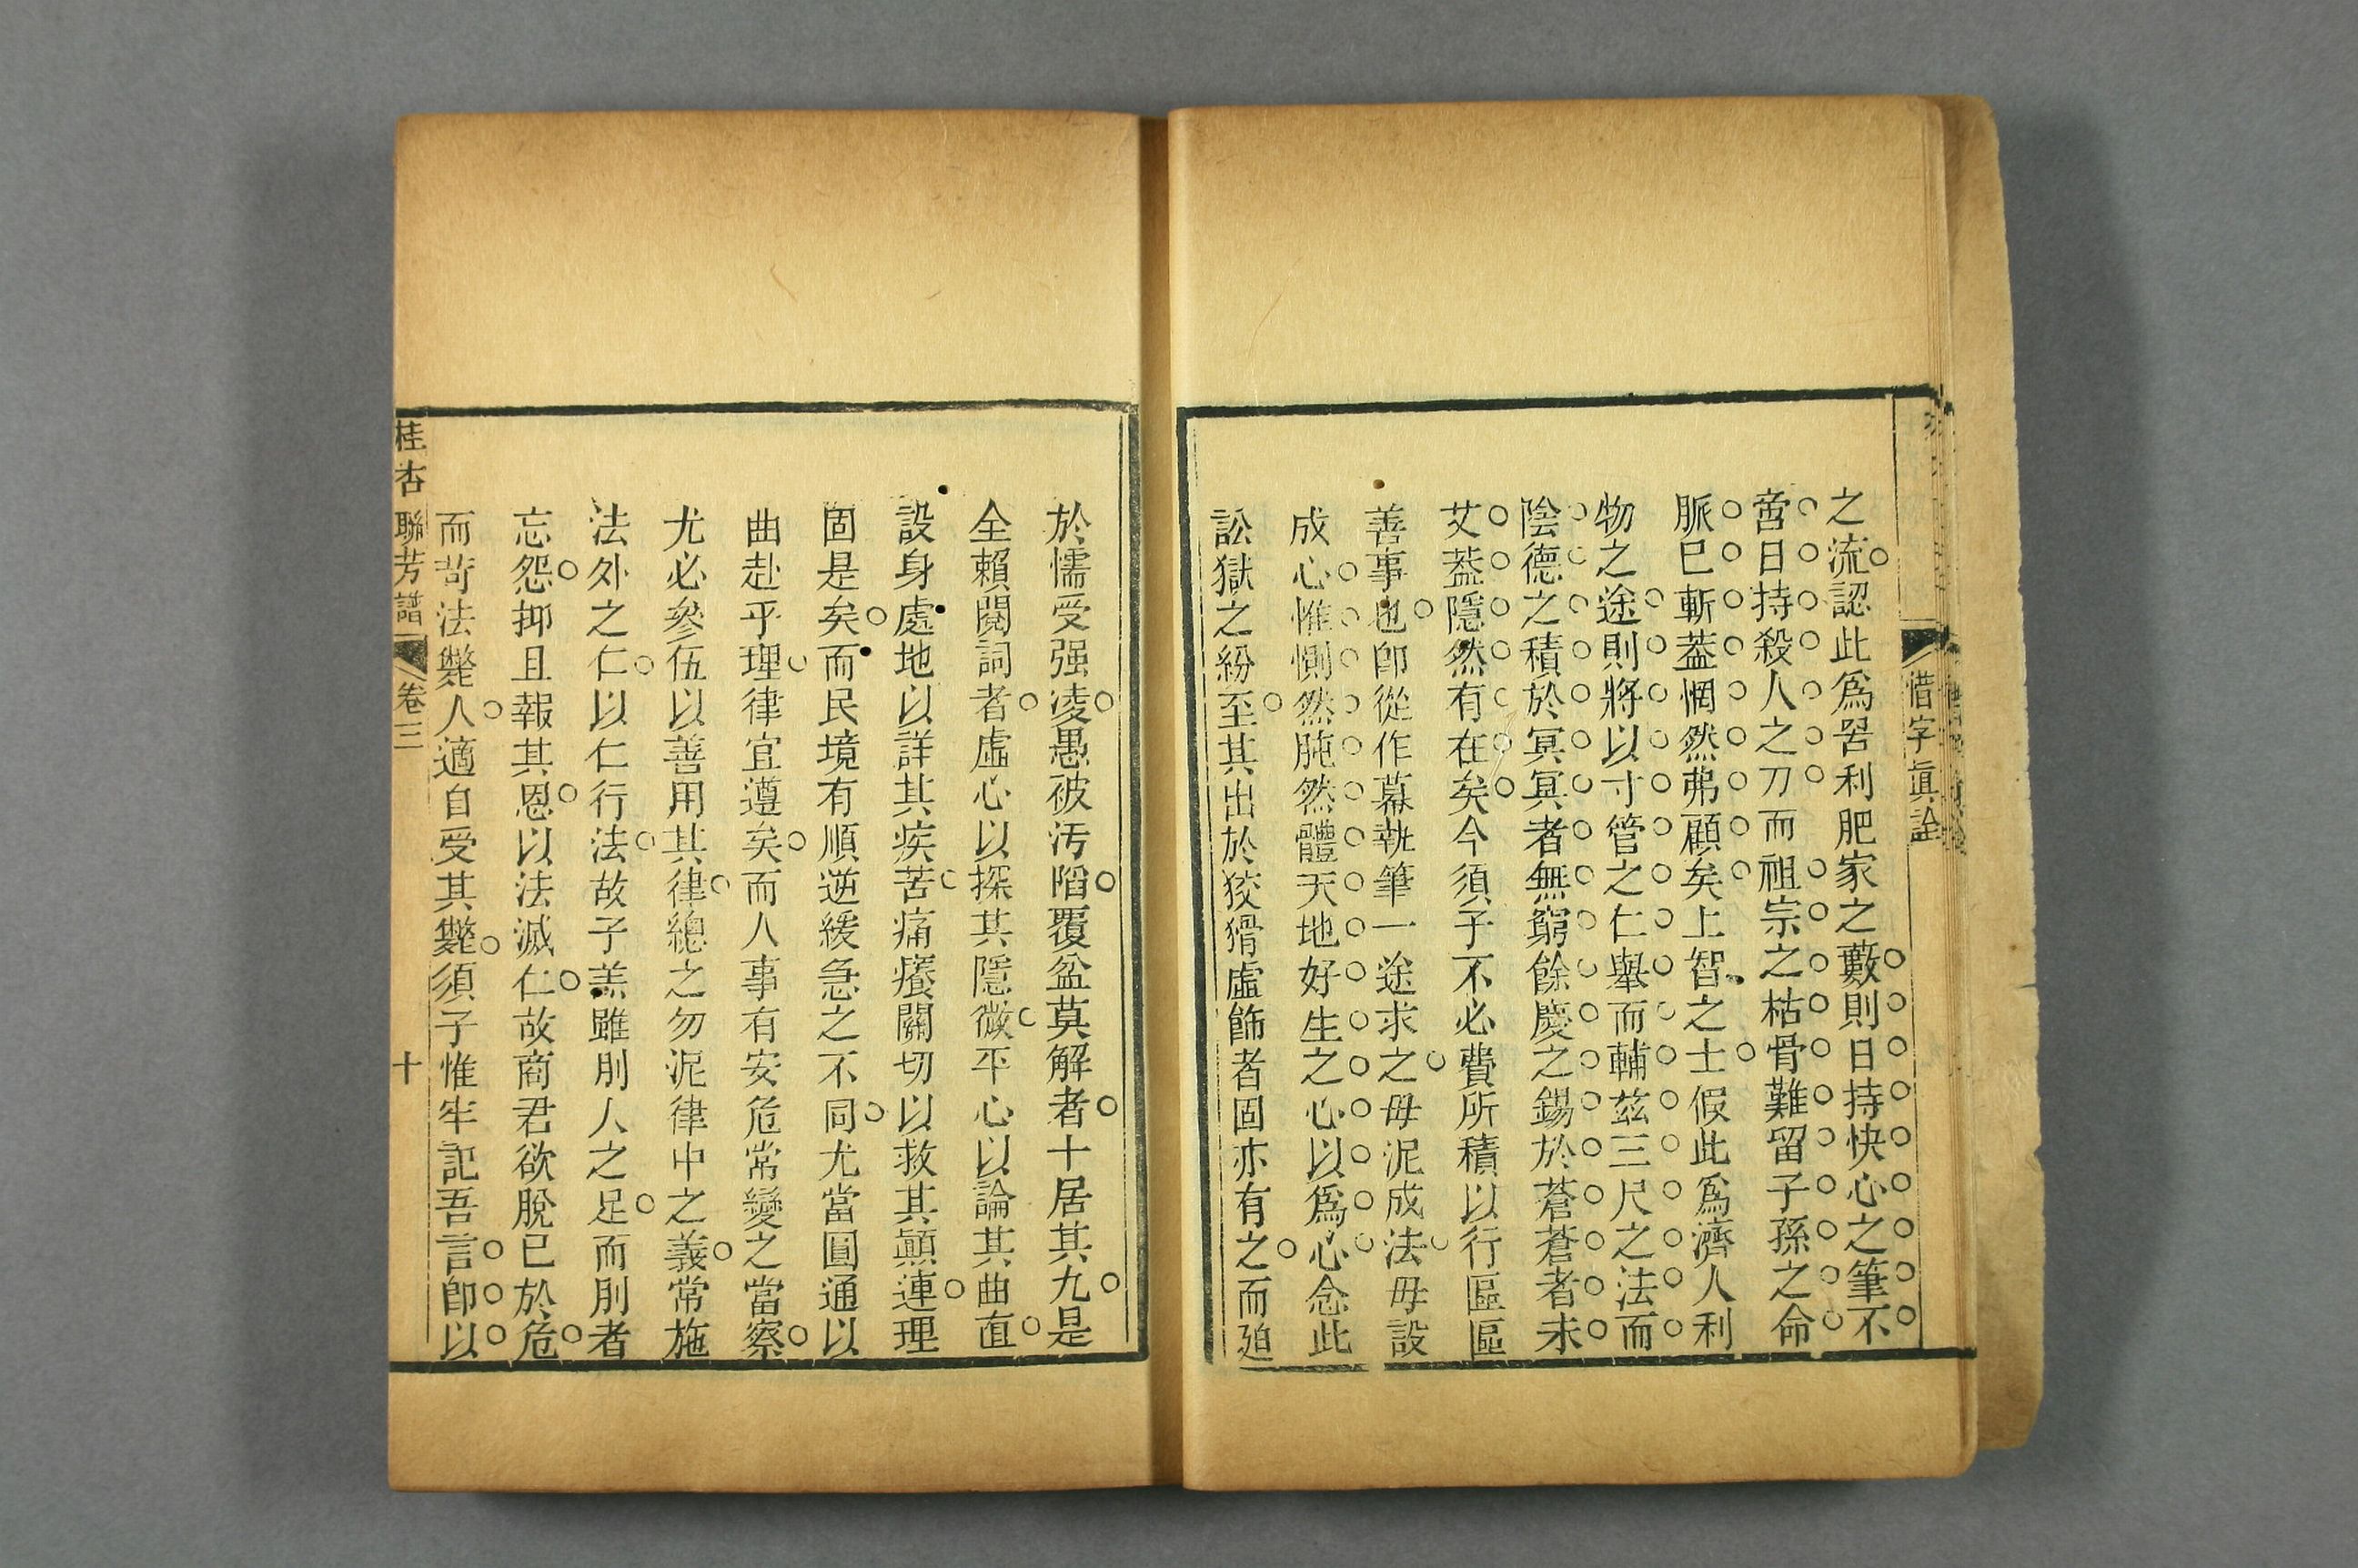 惜字眞詮
之流認此爲罟利肥家之藪則日持快心之筆不
啻日持殺人之刀而祖宗之枯骨難留子孫之命
脈已斬葢惘然弗顧矣上智之士假此爲濟人利
物之途則將以寸管之仁舉而輔茲三尺之法而
陰德之積於冥冥者無窮餘慶之錫於蒼蒼者未
艾葢隱然有在矣今須子不必費所積以行區區
善事也卽從作幕執筆一途求之毋泥成法毋設
成心惟惻然肫然體天地好生之心以爲心念此
訟獄之紛至其出於狡猾虛飾者固亦有之而廹
於懦受强凌愚被汚陷覆盆莫解者十居其九是
全賴閱詞者虛心以探其隱微平心以論其曲直
設身處地以詳其疾苦痛癢關切以救其顚連理
固是矣而民境有順逆緩急之不同尤當圓通以
曲赴乎理律宜遵矣而人事有安危常變之當察
尤必參伍以善用其律總之勿泥律中之義常施
法外之仁以仁行法故子羔雖刖人之足而刖者
忘怨抑且報其恩以法滅仁故商君欲脫已於危
而苛法斃人適自受其斃須子惟牢記吾言卽以
桂杏聯芳譜 卷三 十